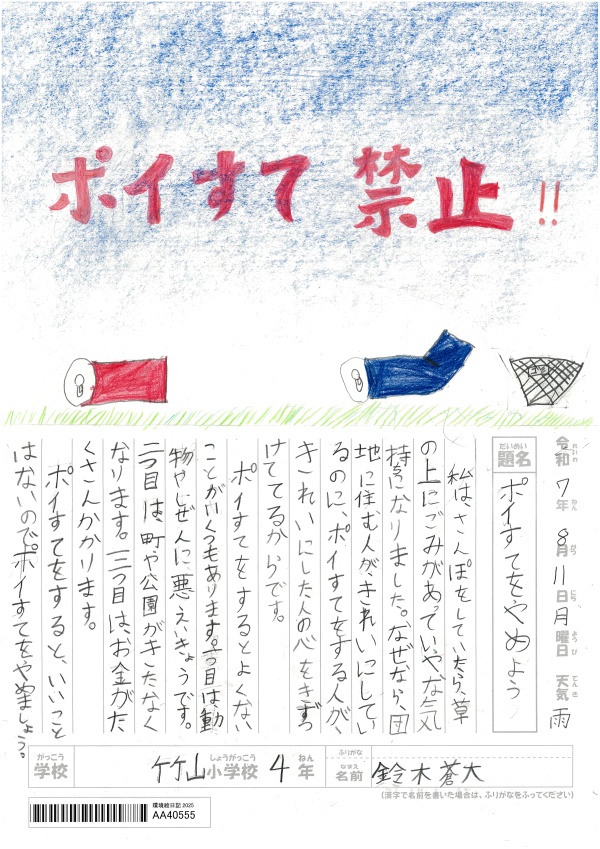 ポイすて 禁止!!
令和 7年 8月 11日 月曜日 天気 雨
れいわ ねん がつ にち ようび てんき
だいめい
題名 ポイすてをやめよう
私は、さんぽをしていたら、草
の上にごみがあっていやな気
持ちになりました。なぜなら、団
地に住む人が、きれいにしてい
るのに、ポイすてをする人が、
きれいにした人の心をきずつ
けてるからです。
ポイすてをするとよくない
ことがいくつもあります。一つ目は動
物やしぜんに悪えいきょうです。
二つ目は、町や公園がきたなく
なります。三つ目は、お金がた
くさんかかります。
ポイすてをすると、いいこと
はないのでポイすてをやめましょう。
がっこう しょうがっこう ねん
学校 竹山小学校 4年
ふりがな
なまえ
名前 鈴木蒼大
(漢字で名前を書いた場合は、ふりがなをふってください)
環境絵日記 2025
AA40555